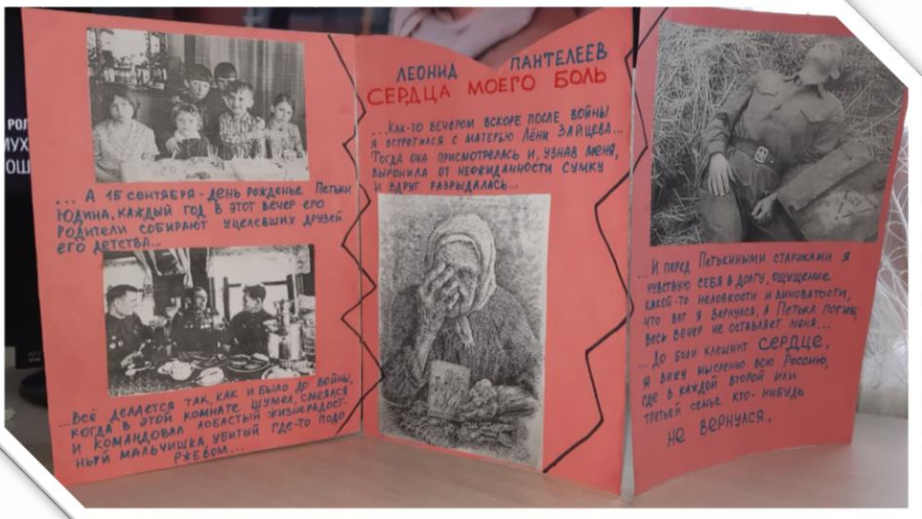 ... А 15 сентября - день рожденье Петьки
Юдина, каждый год в этот вечер его
родители собирают уцелевших друзей
его детства...
...Всё делается так, как и было до войны,
когда в этой комнате шумел, смеялся
и командовал лобастый жизнерадост-
ный мальчишка, убитый где-то подо
Ржевом...
ЛЕОНИД ПАНТЕЛЕЕВ
СЕРДЦА МОЕГО БОЛЬ
...Как-то вечером вскоре после войны
я встретился с матерью Лёни Зайцева...
Тогда она присмотрелась и, узнав меня,
выронила от неожиданности сумку
и вдруг разрыдалась...
...И перед Петькиными стариками я
чувствую себя в долгу, ощущение
какой-то неловкости и виноватости,
что вот я вернулся, а Петька погиб,
весь вечер не оставляет меня...
...До боли клещнит СЕРДЦЕ.
Я вижу мысленно всю Россию,
где в каждой второй или
третьей семье кто-нибудь
НЕ ВЕРНУЛСЯ.